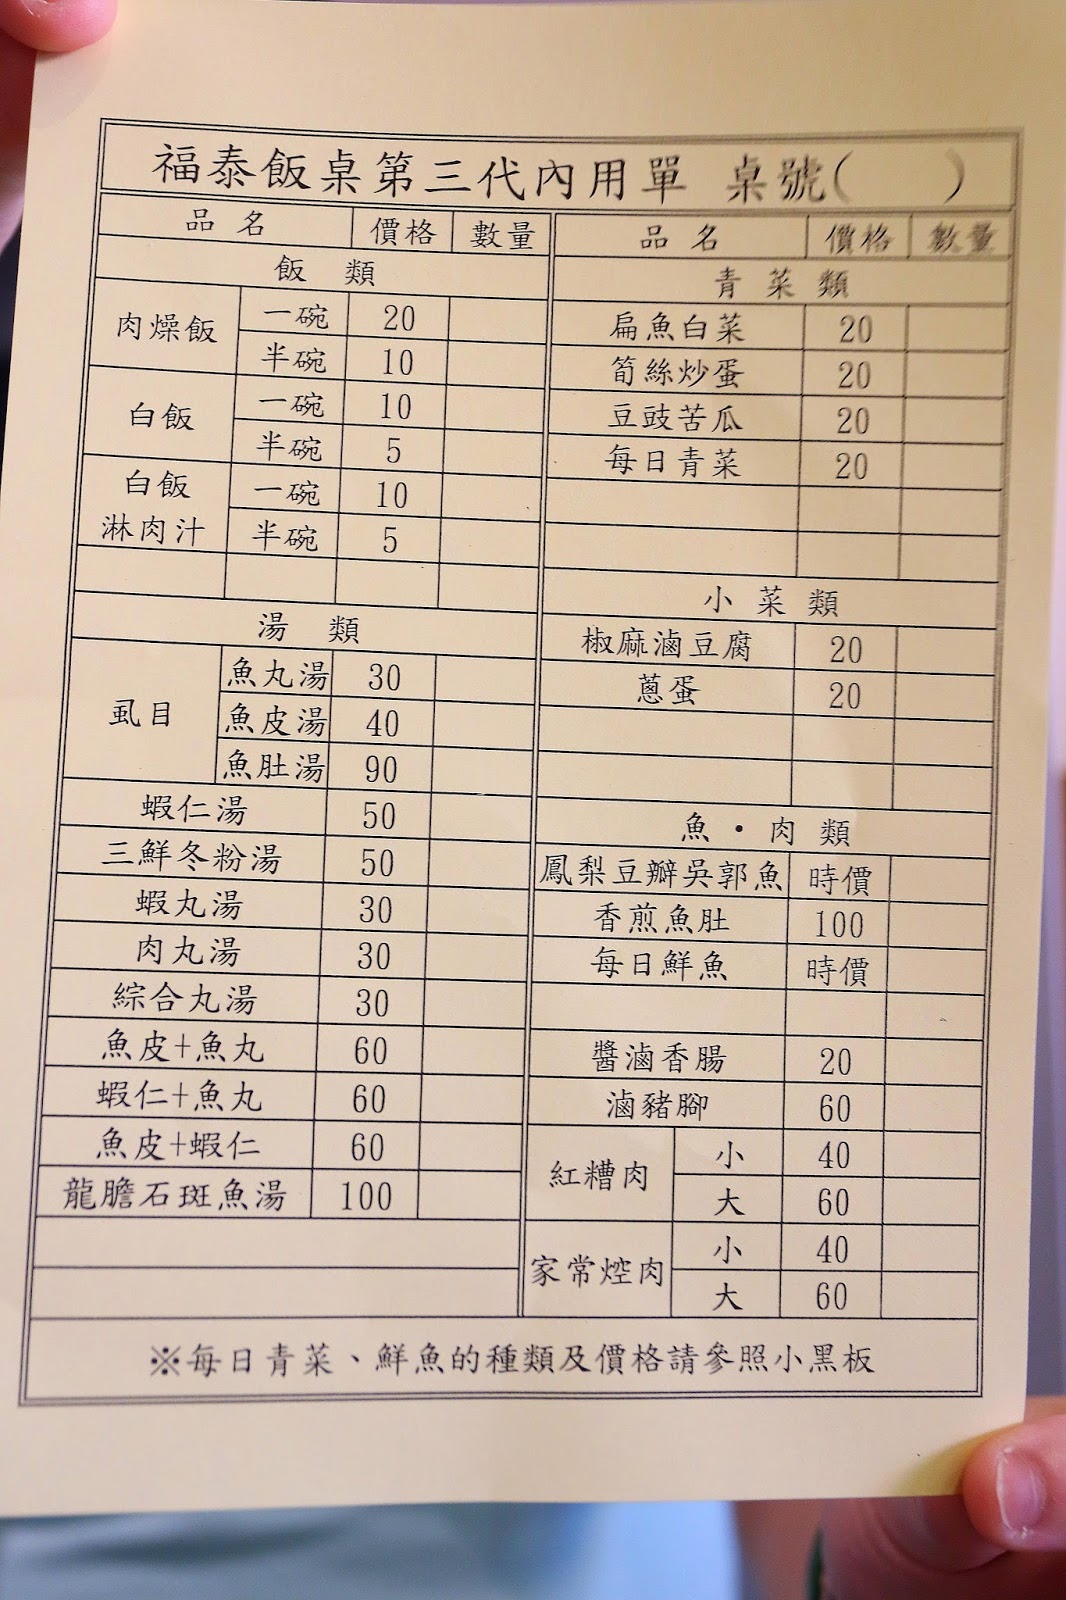 福泰飯桌第三代內用單 桌號( )
品名 價格 數量
飯類
肉燥飯 一碗 20
半碗 10
白飯 一碗 10
半碗 5
白飯淋肉汁 一碗 10
半碗 5
湯類
虱目 魚丸湯 30
魚皮湯 40
魚肚湯 90
蝦仁湯 50
三鮮冬粉湯 50
蝦丸湯 30
肉丸湯 30
綜合丸湯 30
魚皮+魚丸 60
蝦仁+魚丸 60
魚皮+蝦仁 60
龍膽石斑魚湯 100
品名 價格 數量
青菜類
扁魚白菜 20
筍絲炒蛋 20
豆豉苦瓜 20
每日青菜 20
小菜類
椒麻滷豆腐 20
蔥蛋 20
魚・肉類
鳳梨豆瓣吳郭魚 時價
香煎魚肚 100
每日鮮魚 時價
醬滷香腸 20
滷豬腳 60
紅糟肉 小 40
大 60
家常焢肉 小 40
大 60
※每日青菜、鮮魚的種類及價格請參照小黑板